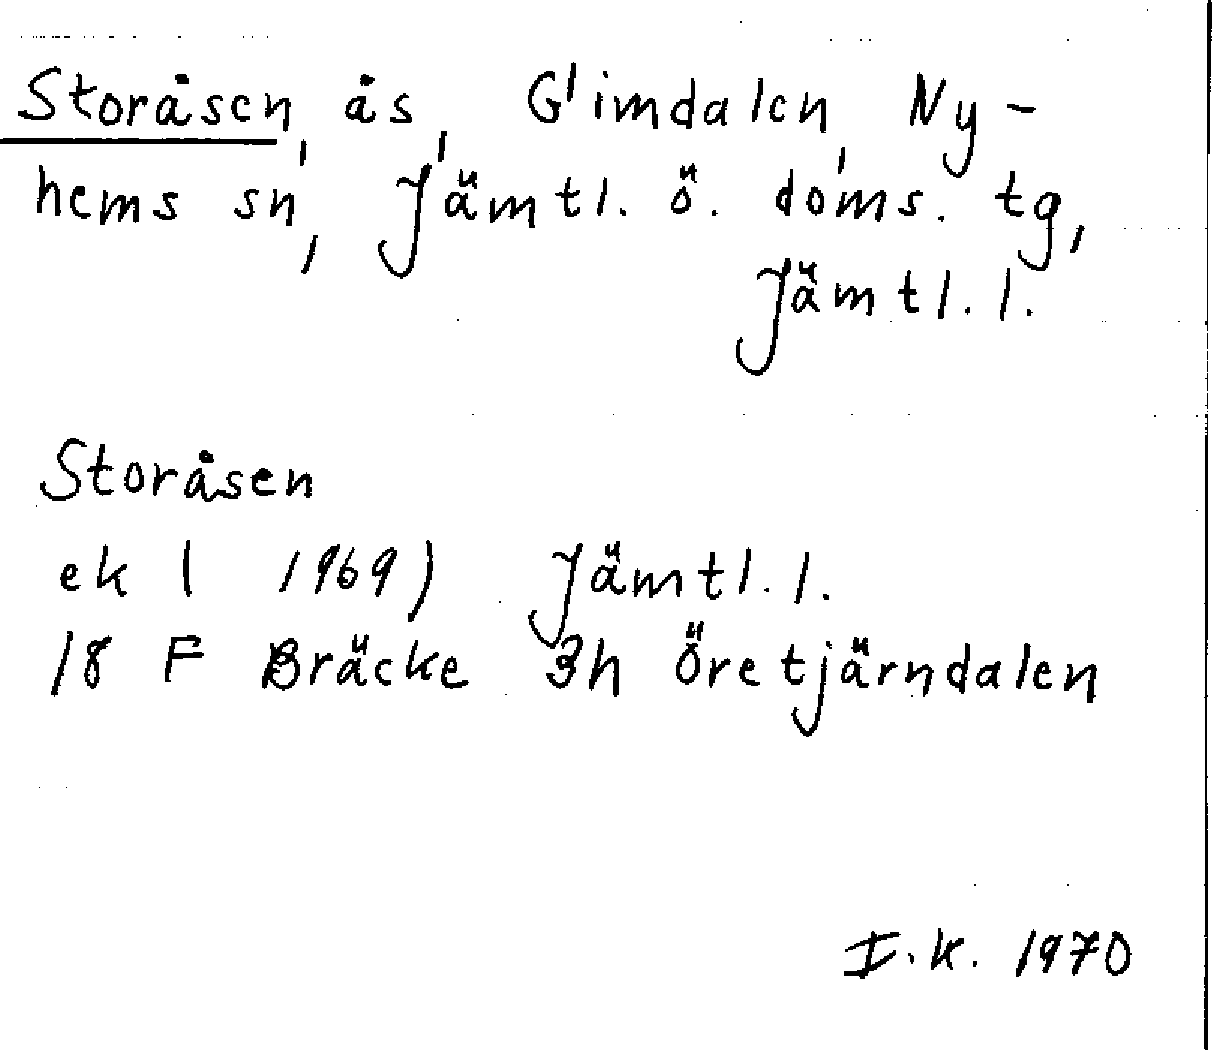 Storåsen, ås, Gimdalen, Ny-
hems sn, Jämtl. ö. doms. tg,
Jämtl. l.
Storåsen
ek ( 1969) Jämtl. l.
18 F Bräcke 3h Öretjärndalen
I. K. 1970